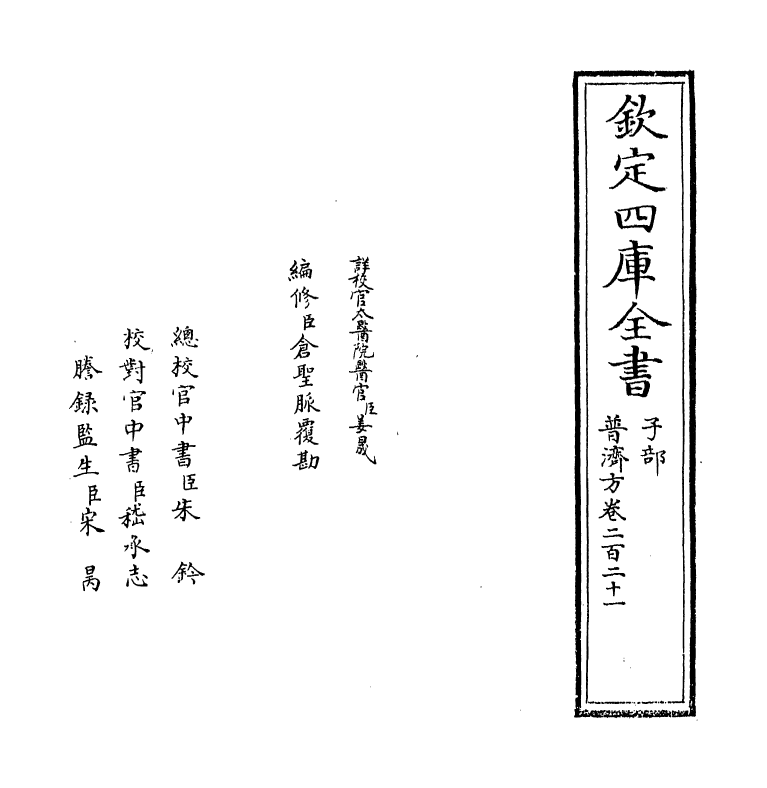 欽定四庫全書
子部
普濟方卷二百二十一
詳校官太醫院醫官臣姜晟
編修臣倉聖脈覆勘
總校官中書臣朱鈐
校對官中書臣嵇承志
謄録監生臣宋昺